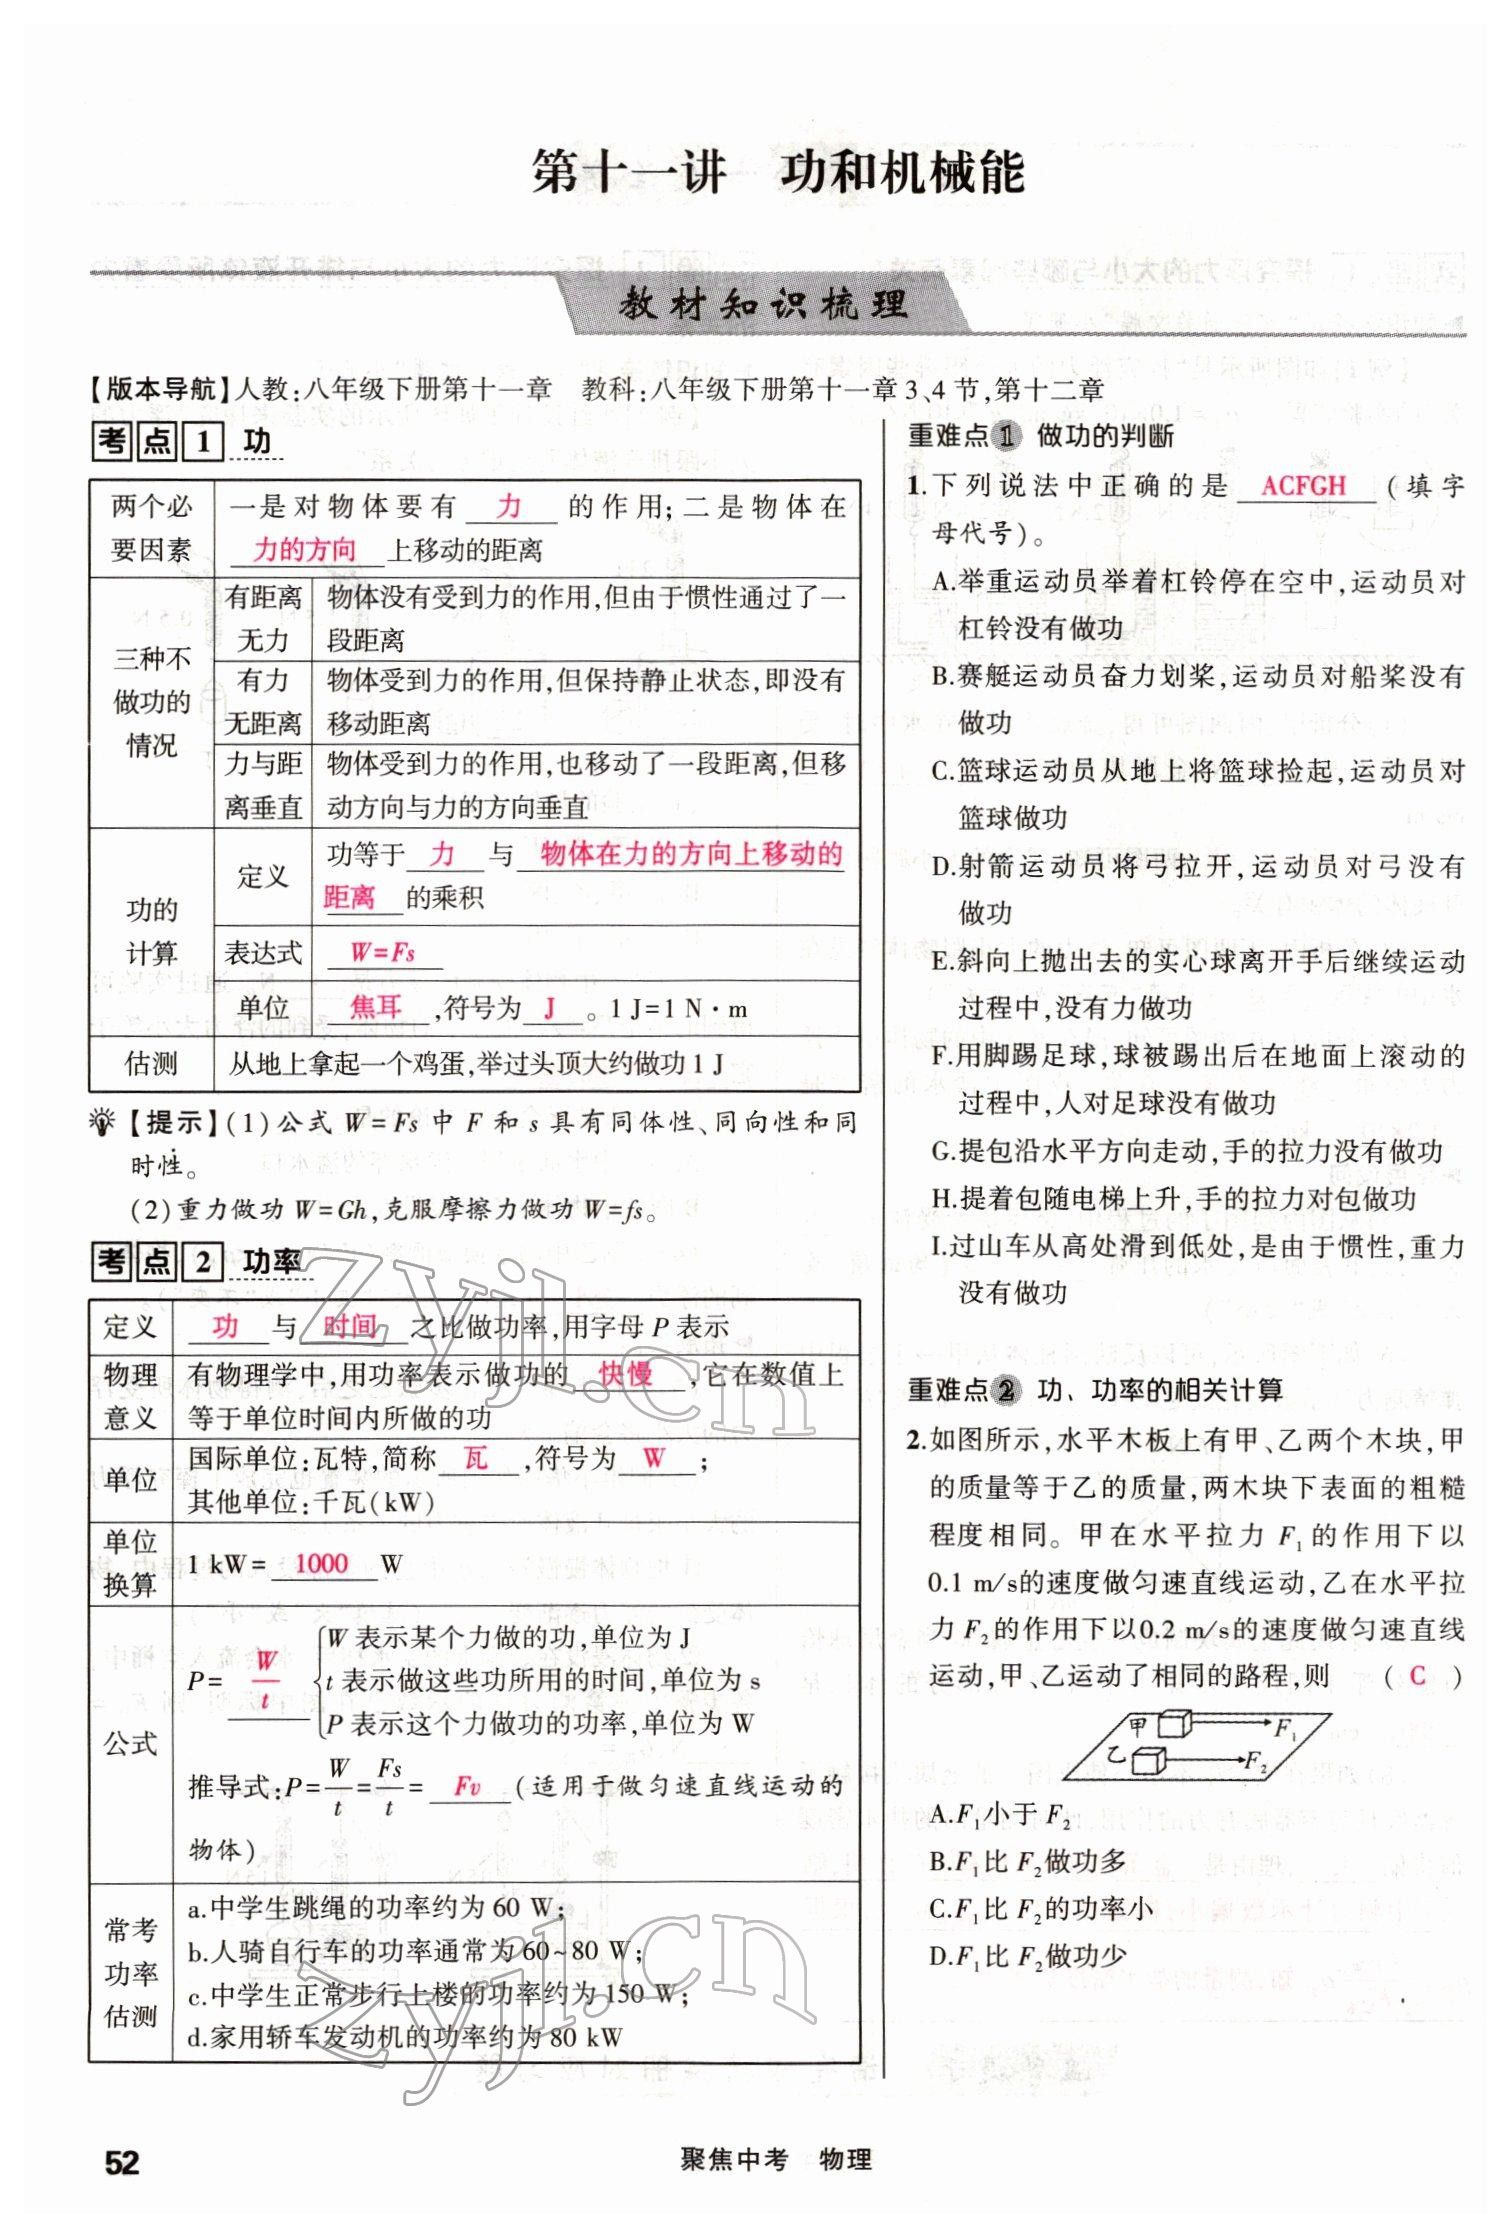 第十一讲 功和机械能
教材知识梳理
【版本导航】人教:八年级下册第十一章 教科:八年级下册第十一章3、4节,第十二章
考点1 功
两个必要因素
一是对物体要有 力 的作用;二是物体在
力的方向 上移动的距离
三种不做功的情况
有距离无力
物体没有受到力的作用,但由于惯性通过了一
段距离
有力无距离
物体受到力的作用,但保持静止状态,即没有
移动距离
力与距离垂直
物体受到力的作用,也移动了一段距离,但移
动方向与力的方向垂直
功的计算
定义
功等于 力 与 物体在力的方向上移动的
距离 的乘积
表达式 W=Fs
单位 焦耳 ,符号为 J 。1 J=1 N·m
估测 从地上拿起一个鸡蛋,举过头顶大约做功1 J
【提示】(1)公式 W=Fs 中 F 和 s 具有同体性、同向性和同
时性。
(2)重力做功 W=Gh,克服摩擦力做功 W=fs。
考点2 功率
定义 功 与 时间 之比做功率,用字母 P 表示
物理意义
有物理学中,用功率表示做功的 快慢 ,它在数值上
等于单位时间内所做的功
单位
国际单位:瓦特,简称 瓦 ,符号为 W ;
其他单位:千瓦(kW)
单位换算
1 kW= 1000 W
公式
P= W/t
W 表示某个力做的功,单位为 J
t 表示做这些功所用的时间,单位为 s
P 表示这个力做功的功率,单位为 W
推导式:P=W/t=Fs/t= Fv (适用于做匀速直线运动的
物体)
常考功率估测
a.中学生跳绳的功率约为 60 W;
b.人骑自行车的功率通常为60~80 W;
c.中学生正常步行上楼的功率约为 150 W;
d.家用轿车发动机的功率约为 80 kW
重难点1 做功的判断
1.下列说法中正确的是 ACFGH (填字
母代号)。
A.举重运动员举着杠铃停在空中,运动员对
杠铃没有做功
B.赛艇运动员奋力划桨,运动员对船桨没有
做功
C.篮球运动员从地上将篮球捡起,运动员对
篮球做功
D.射箭运动员将弓拉开,运动员对弓没有
做功
E.斜向上抛出去的实心球离开手后继续运动
过程中,没有力做功
F.用脚踢足球,球被踢出后在地面上滚动的
过程中,人对足球没有做功
G.提包沿水平方向走动,手的拉力没有做功
H.提着包随电梯上升,手的拉力对包做功
I.过山车从高处滑到低处,是由于惯性,重力
没有做功
重难点2 功、功率的相关计算
2.如图所示,水平木板上有甲、乙两个木块,甲
的质量等于乙的质量,两木块下表面的粗糙
程度相同。甲在水平拉力 F₁的作用下以
0.1 m/s的速度做匀速直线运动,乙在水平拉
力 F₂的作用下以0.2 m/s的速度做匀速直线
运动,甲、乙运动了相同的路程,则 ( C )
甲 F₁
乙 F₂
A.F₁小于 F₂
B.F₁比 F₂做功多
C.F₁比 F₂的功率小
D.F₁比 F₂做功少
zyjl.cn
zyjl.cn
52
聚焦中考 物理